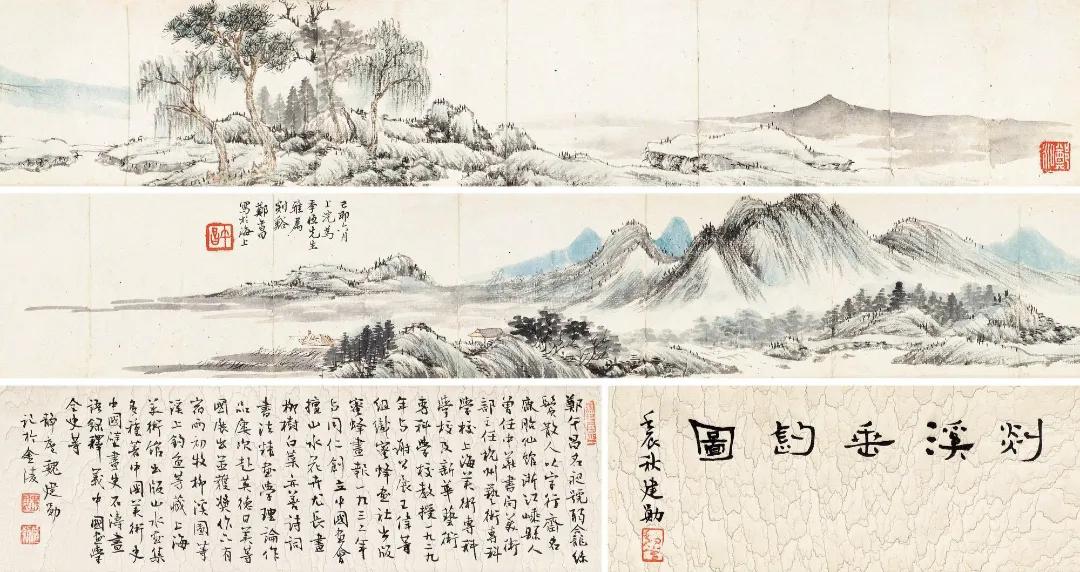 鄭昶
己卯六月
上浣為
季恆先生
雅屬
剡谿
鄭昶
寫於海上
午昌
剡溪垂釣圖
壬辰秋建勛
鄭午昌名昶號弱龕絲
鬢散人以字行齋名
鹿胎仙館浙江嵊縣人
曾任中華書局美術
部主任杭州藝術專科
學校上海美術專科
學校及新華藝術
專科學校教授一九二九
年與謝公展王偉等
組織蜜蜂畫社出版
蜜蜂畫報一九三二年
與同仁創立中國畫會
擅山水花卉尤長畫
柳樹白菜亦善詩詞
書法精畫學理論作
品屢次赴英德日美等
國展出並獲獎作品有
宿雨初收柳溪圖等
溪上釣魚等藏上海
美術館出版山水畫集
多種著中國美術史
中國壁畫史石濤畫
語錄釋義中國畫學
全史等
魏建勛
記於金陵